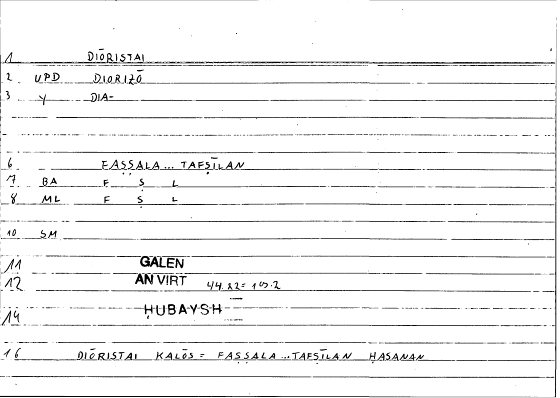 1 DIŌRISTAI
2 UPD DIORIZŌ
3 Y DIA-
6 FAṢṢALA... TAFṢĪLAN
7 BA F Ṣ L
8 ML F Ṣ L
10 SM
11 GALEN
12 AN VIRT 4/4.22=
14 ḤUBAYSH
16 DIŌRISTAI KALŌS = FAṢṢALA...TAFṢĪLAN ḤASANAN